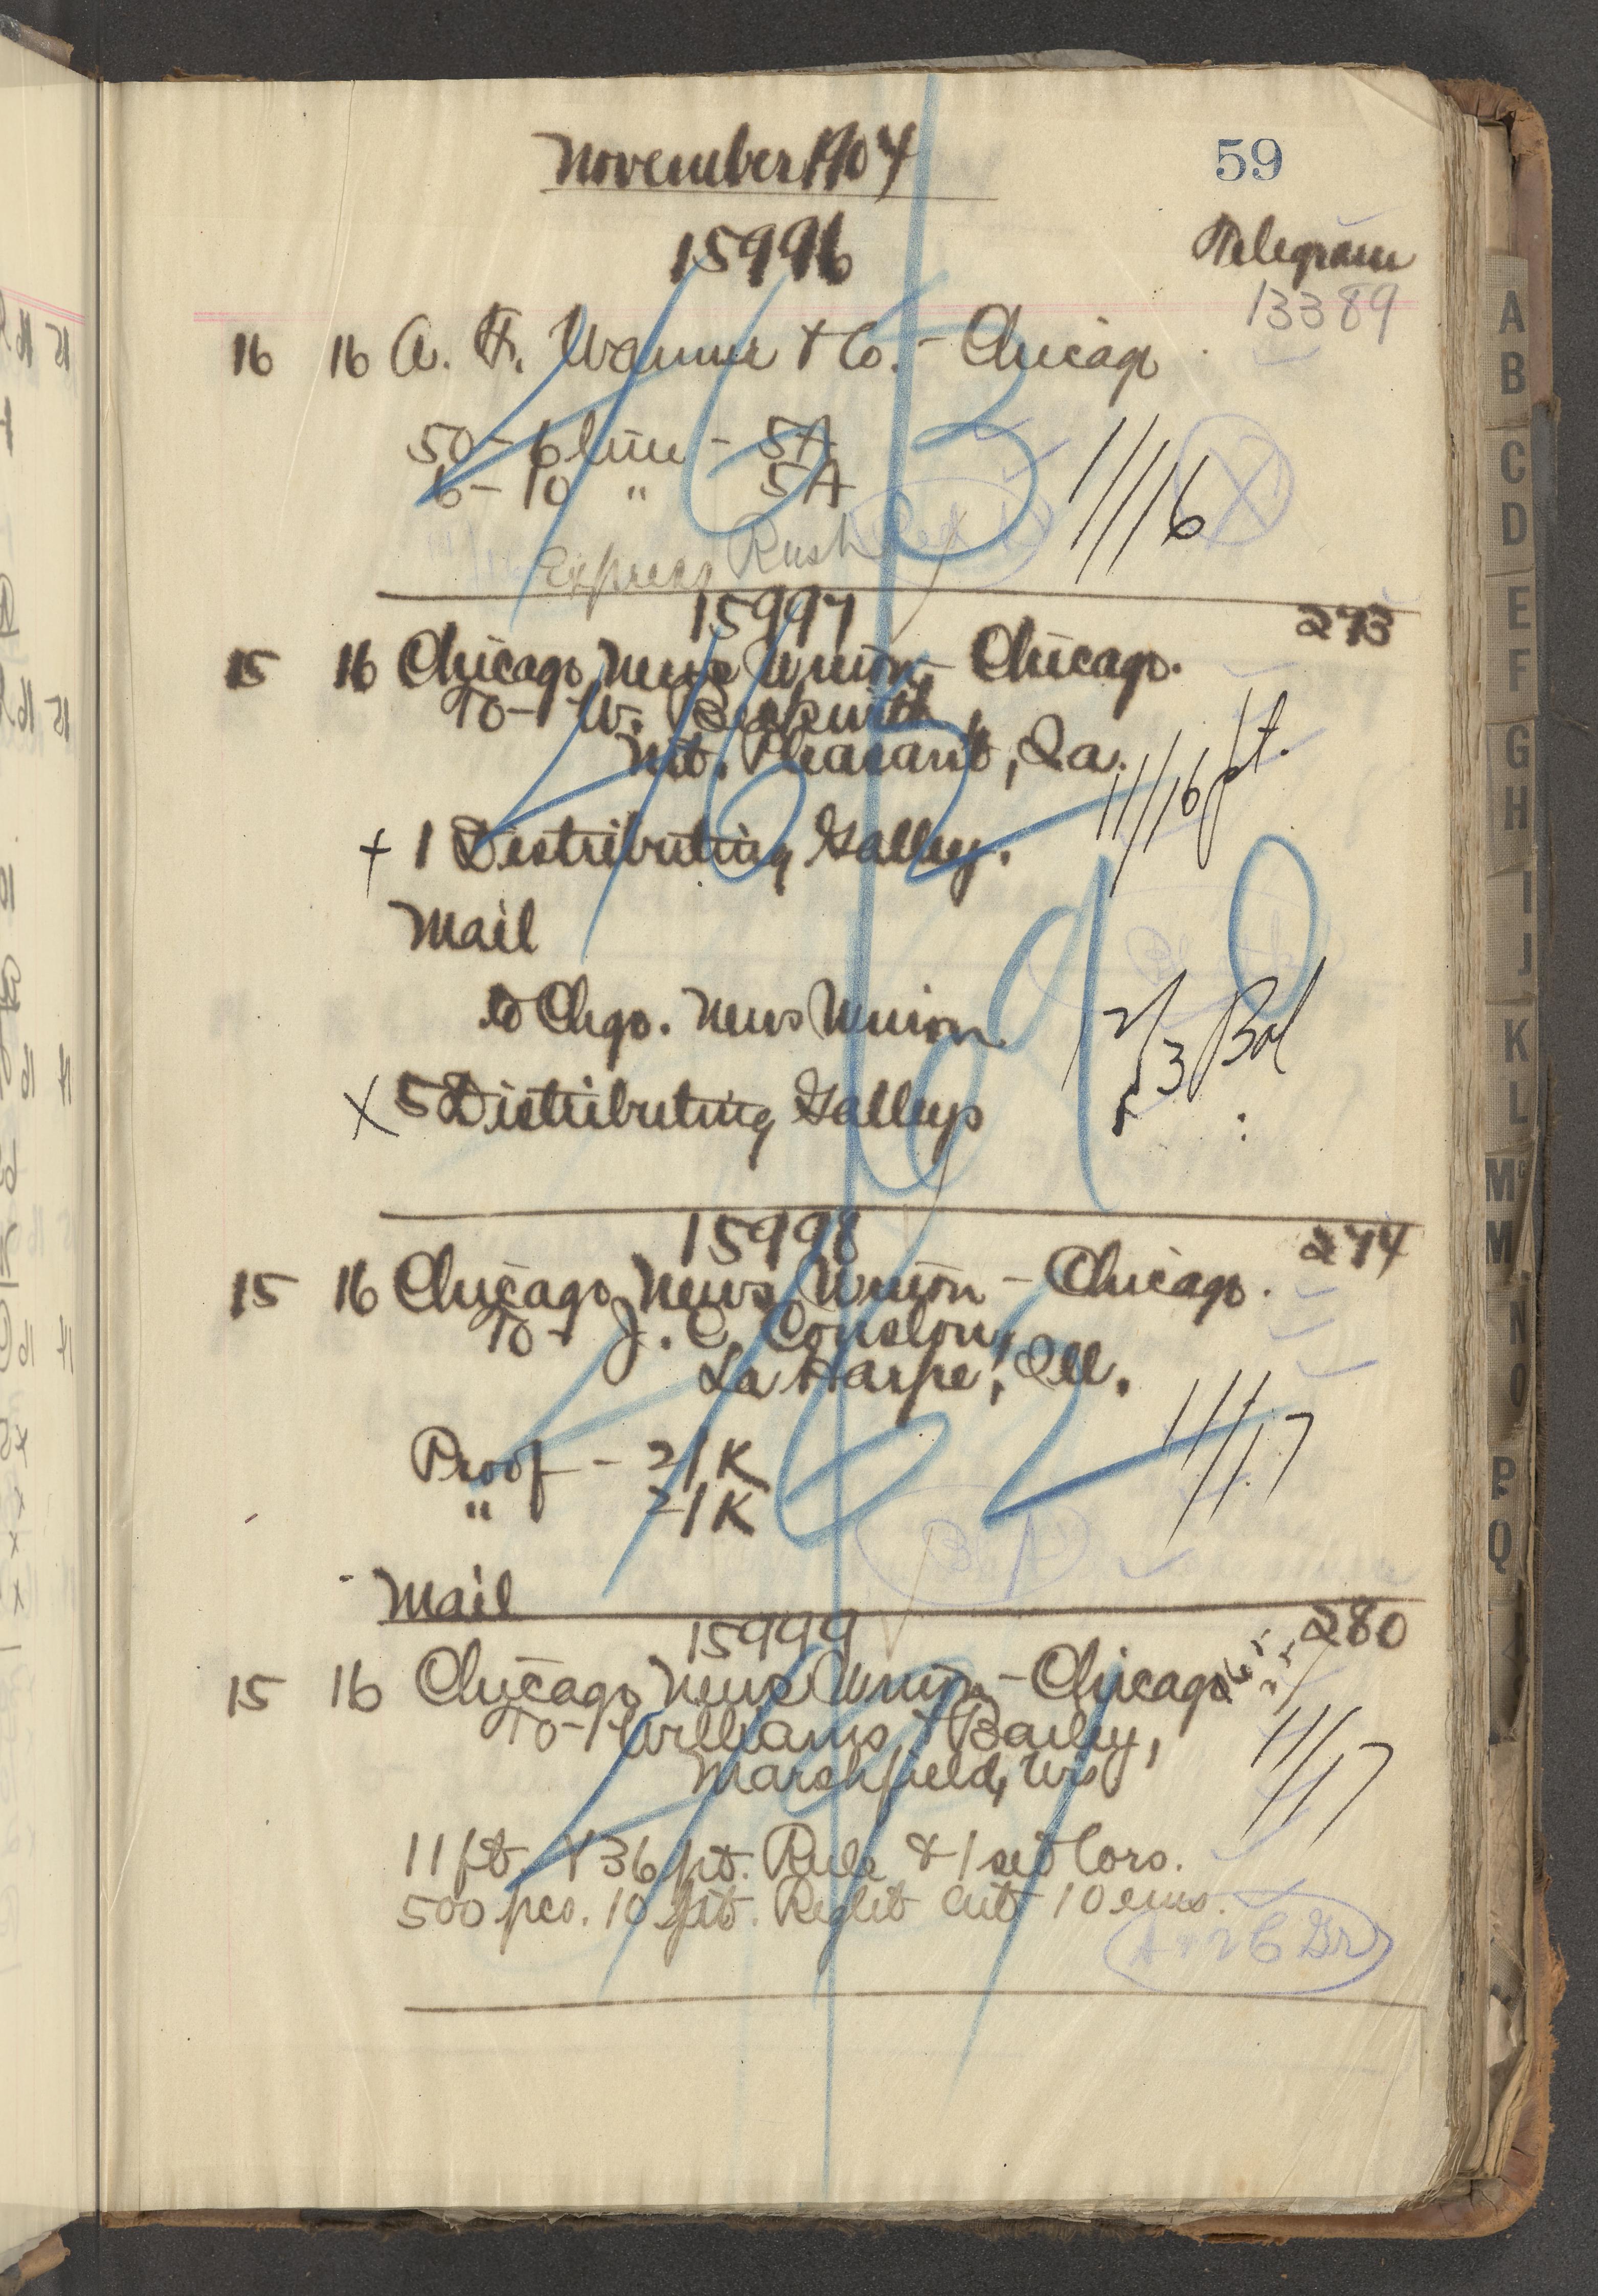 November 1904
59
15996
Telegram
13389
16 16 A. F. Wanner & Co. - Chicago
50 - 6 line - 5A
6 - 10 " 5A
11/16
X
Express Rush
15997
273
15 16 Chicago News Union - Chicago.
To - W. Beckwith
Mt. Pleasant, Ia.
11/16 pt.
+ 1 Distributing Galley.
Mail
to Chgo. News Union
2/3 Bal
X 5 Distributing Galleys
15998
274
15 16 Chicago News Union - Chicago.
To - J. C. Coulson,
La Harpe, Ill.
11/17
Proof - 21K
" 21K
Mail
15999
280
15 16 Chicago News Union - Chicago
To - Williams & Bailey,
Marshfield, Wis
11/17
11 ft. 36 pt. Rule & 1 set Cors.
500 pcs. 10 pt. Reglet cut 10 ems.
A B C D E F G H I J K L Mc M N O P Q